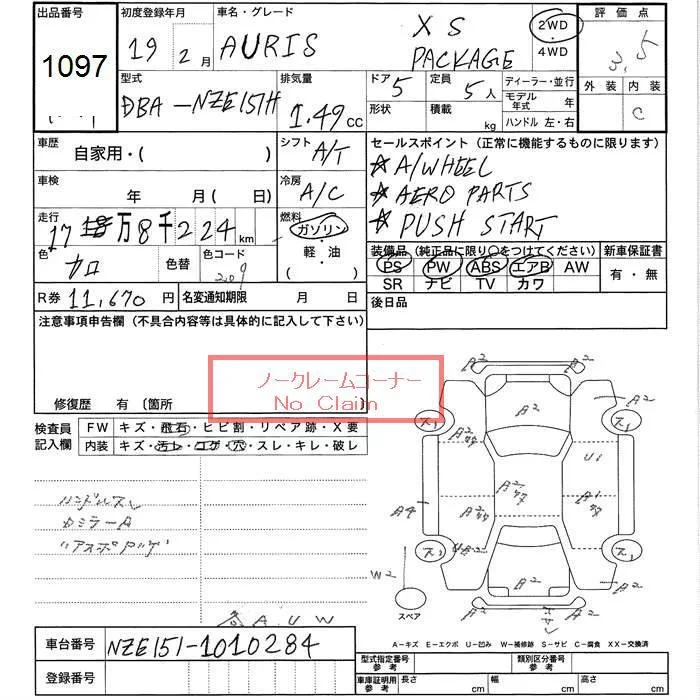 出品番号 初度登録年月 車名・グレード 評価点
1097 19 2月 AURIS XS PACKAGE 2WD・4WD 3.5
外装 内装 C
型式 排気量 ドア 定員 ディーラー・並行
DBA-NZE151H 1.49cc 5 5人 モデル年式 年
形状 積載 kg ハンドル 左・右
車歴 自家用・( ) シフト A/T
セールスポイント (正常に機能するものに限ります)
★A/WHEEL
★AERO PARTS
★PUSH START
車検 年 月(日) 冷房 A/C
走行 17万8千224km 燃料 ガソリン・軽・油 ( )
装備品 (純正品に限り○をつけてください) 新車保証書
PS PW ABS エアB AW 有・無
SR ナビ TV カワ
色 クロ 色替 色コード 209
R券 11,670円 名変通知期限 月 日
後日品
注意事項申告欄 (不具合内容等は具体的に記入して下さい)
ノークレームコーナー
No Claim
修復歴 有 〔箇所
検査員記入欄 FW キズ・飛石・ヒビ割・リペア跡・X要
内装 キズ・汚レ・コゲ・穴・スレ・キレ・破レ
ハンドルスレ
A2 A2
A2 A2
ス1 ス1
U1
A4
ス1 ス1
W2
A2 A2
A2
スペア
A U W
A−キズ E−エクボ U−凹み W−補修跡 S−サビ C−腐食 XX−交換済
車台番号 NZE151-1010284
登録番号
型式指定番号参考 類別区分番号参考
車庫証明用参考 長さ cm 幅 cm 高さ cm